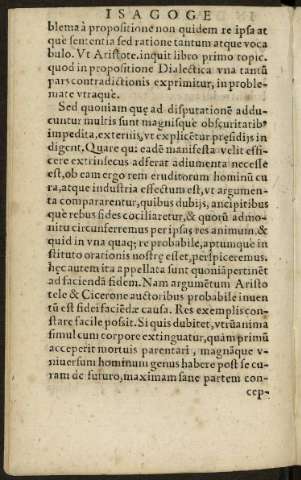 ISAGOGE
blema à propositione non quidem re ipsa at
que sententia sed ratione tantum atque voca
bulo. Vt Aristote. inquit libro primo topic.
quod in propositione Dialectica vna tantũ
pars contradictionis exprimitur, in proble-
mate vtraque.
Sed quoniam quę ad disputationẽ addu-
cuntur multis sunt magnisque obscuritatib'
impedita, externis, vt explicẽtur pręsidijs in
digent. Quare qui eadẽ manifesta velit effi-
cere extrinsecus adferat adiumenta necesse
est, ob eam ergo rem eruditorum hominũ cu
ra, atque industria effectum est, vt argumen-
ta compararentur, quibus dubijs, ancipitibus
que rebus fides cõciliaretur, & quorũ admo-
nitu circunferremus per ipsas res animum. &
quid in vna quaq; re probabile, aptumque in
stituto orationis nostrę esset, perspiceremus.
hęc autem ita appellata sunt quoniã pertinẽt
ad faciendã fidem. Nam argumẽtum Aristo
tele & Cicerone auctoribus probabile inuen
tũ est fidei faciẽdæ causa. Res exemplis con-
stare facile possit. Si quis dubitet, vtrũ anima
simul cum corpore extinguatur, quàm primũ
acceperit mortuis parentari, magnãque v-
niuersum hominum genus habere post se cu-
ram de futuro, maximam sane partem con-
cep-